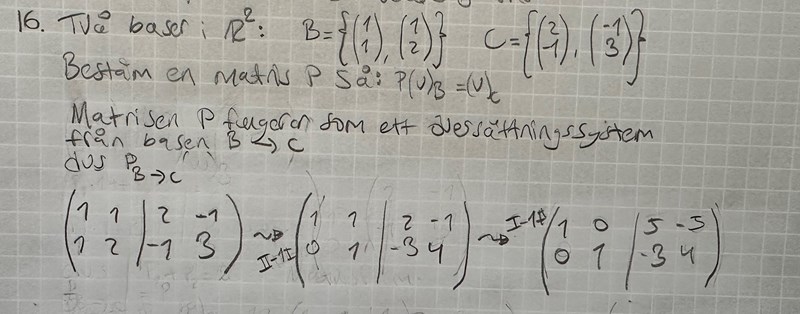 16. Två baser i ℝ²: B={(1 1), (1 2)} C={(2 -1), (-1 3)}
Bestäm en matris P så: P(v)_B = (v)_C
Matrisen P fungerar som ett översättningssystem
från basen B ↔ C
dvs P_{B→C}
(1 1 | 2 -1) ~> (1 1 | 2 -1) ~> I-II (1 0 | 5 -5)
(1 2 | -1 3) II-1I (0 1 | -3 4) (0 1 | -3 4)